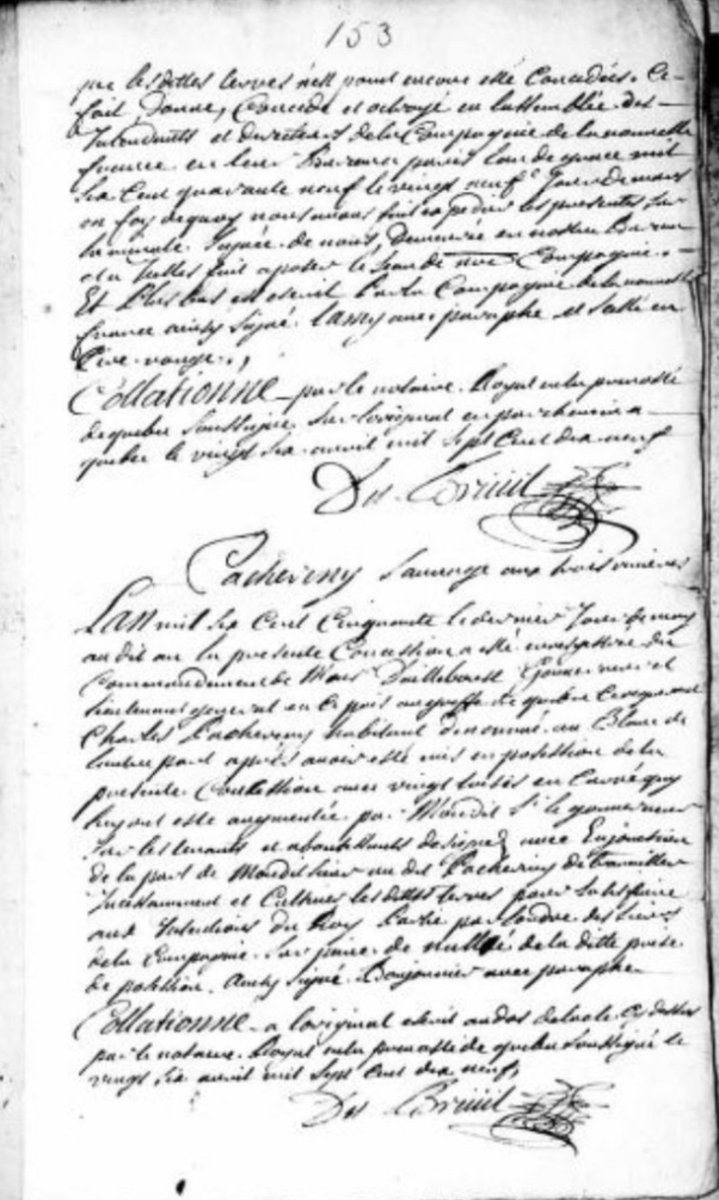 153
que lesdittes terres n'est point encore esté Concedées. Ce
fait, Donné, Concedé et octroyé en lassemblée des
Intendants et directeurs de la Compagnie de la nouvelle
france en leur Bureau a paris Lan de grace mil
Six Cent quarante neuf le vingt neuf.e Jour de mars
en foy de quoy nous avons fait expedier les presentes sur
la minute. Signée de nous, Demeurée en nostre Bureau
et a Icelles fait aposer le Sceau de nre Compagnie.
Et Plus bas est escrit Par la Compagnie de la nouvelle
france ainsy Signé. Lamy avec paraphe et Scellé en
Cire rouge.,
Collationné par le notaire Royal en la prevosté
de quebec Soussigné Sur loriginal en parchemin a
quebec le vingt six avril mil Sept Cent dix neuf
Des Breüil
Pacheriny Sauvage aux trois rivieres
LAN mil six Cent Cinquante le dernier Jour de may
audit an la presente Concession a esté enregistrée du
Commandement de Monsr Dailleboust Gouverneur et
lieutenant general en Ce pais au greffe de quebec
Charles Pacheriny habitant denommé au Blanc de
lautre part après avoir esté mis en possession de la
presente Concession avec vingt toises en Carré quy
luy ont esté augmentée par Mondit Sr le gouverneur
Sur les tenants et aboutissants designez avec Enjonction
de la part de Mondit Sieur audit Pacheriny de travailler
Incessamment et Cultiver lesdittes terres pour satisfaire
aux Intentions du Roy
de la Compagnie Sur peine de nullité de la ditte prise
de possession Ainsy Signé. Boujonnier avec paraphe
Collationné a loriginal escrit au dos de Cy dessus
par le notaire Royal en la prevosté de quebec Soussigné le
vingt six avril mil Sept Cent dix neuf,
Des Breüil